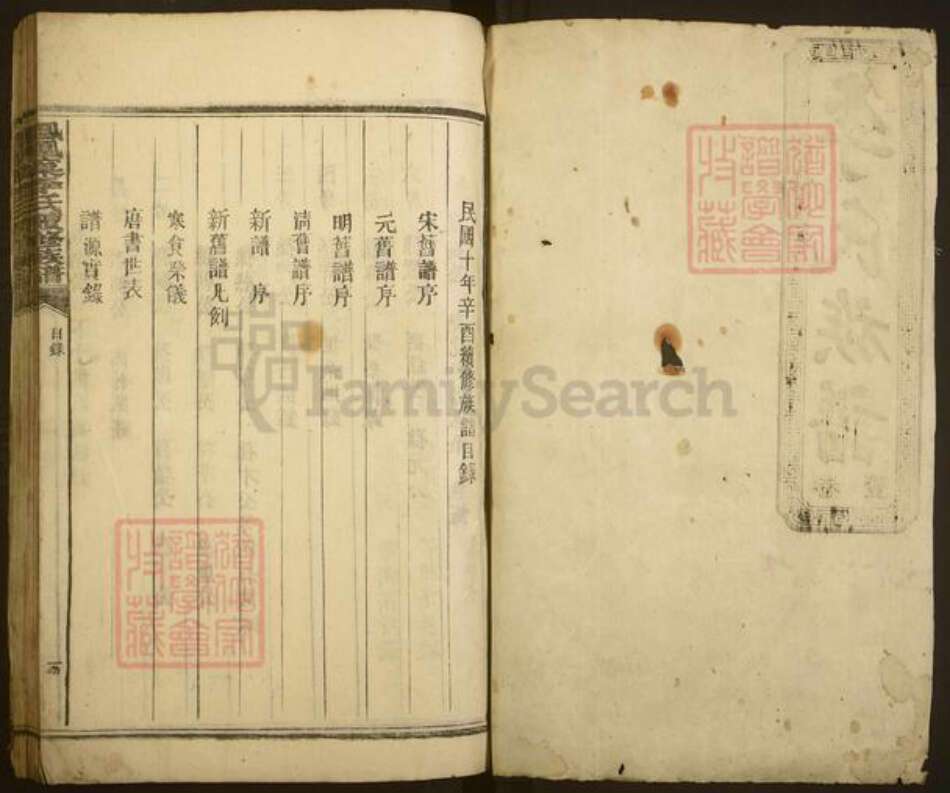 民國十年辛酉續修族譜目錄
宋舊譜序
元舊譜序
明舊譜序
清舊譜序
新譜序
新舊譜凡例
寒食祭儀
唐書世表
譜源實錄
目錄
族譜
卷壹
譜學會
收藏
譜學會
收藏
FamilySearch